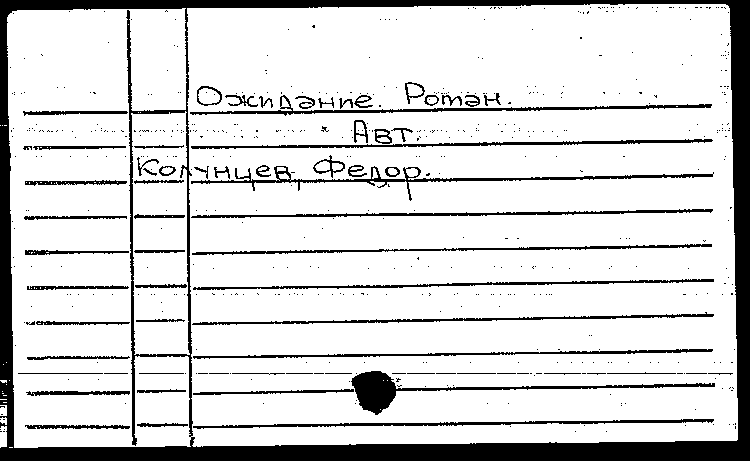 Ожидание. Роман.
Авт.
Колунцев, Федор.